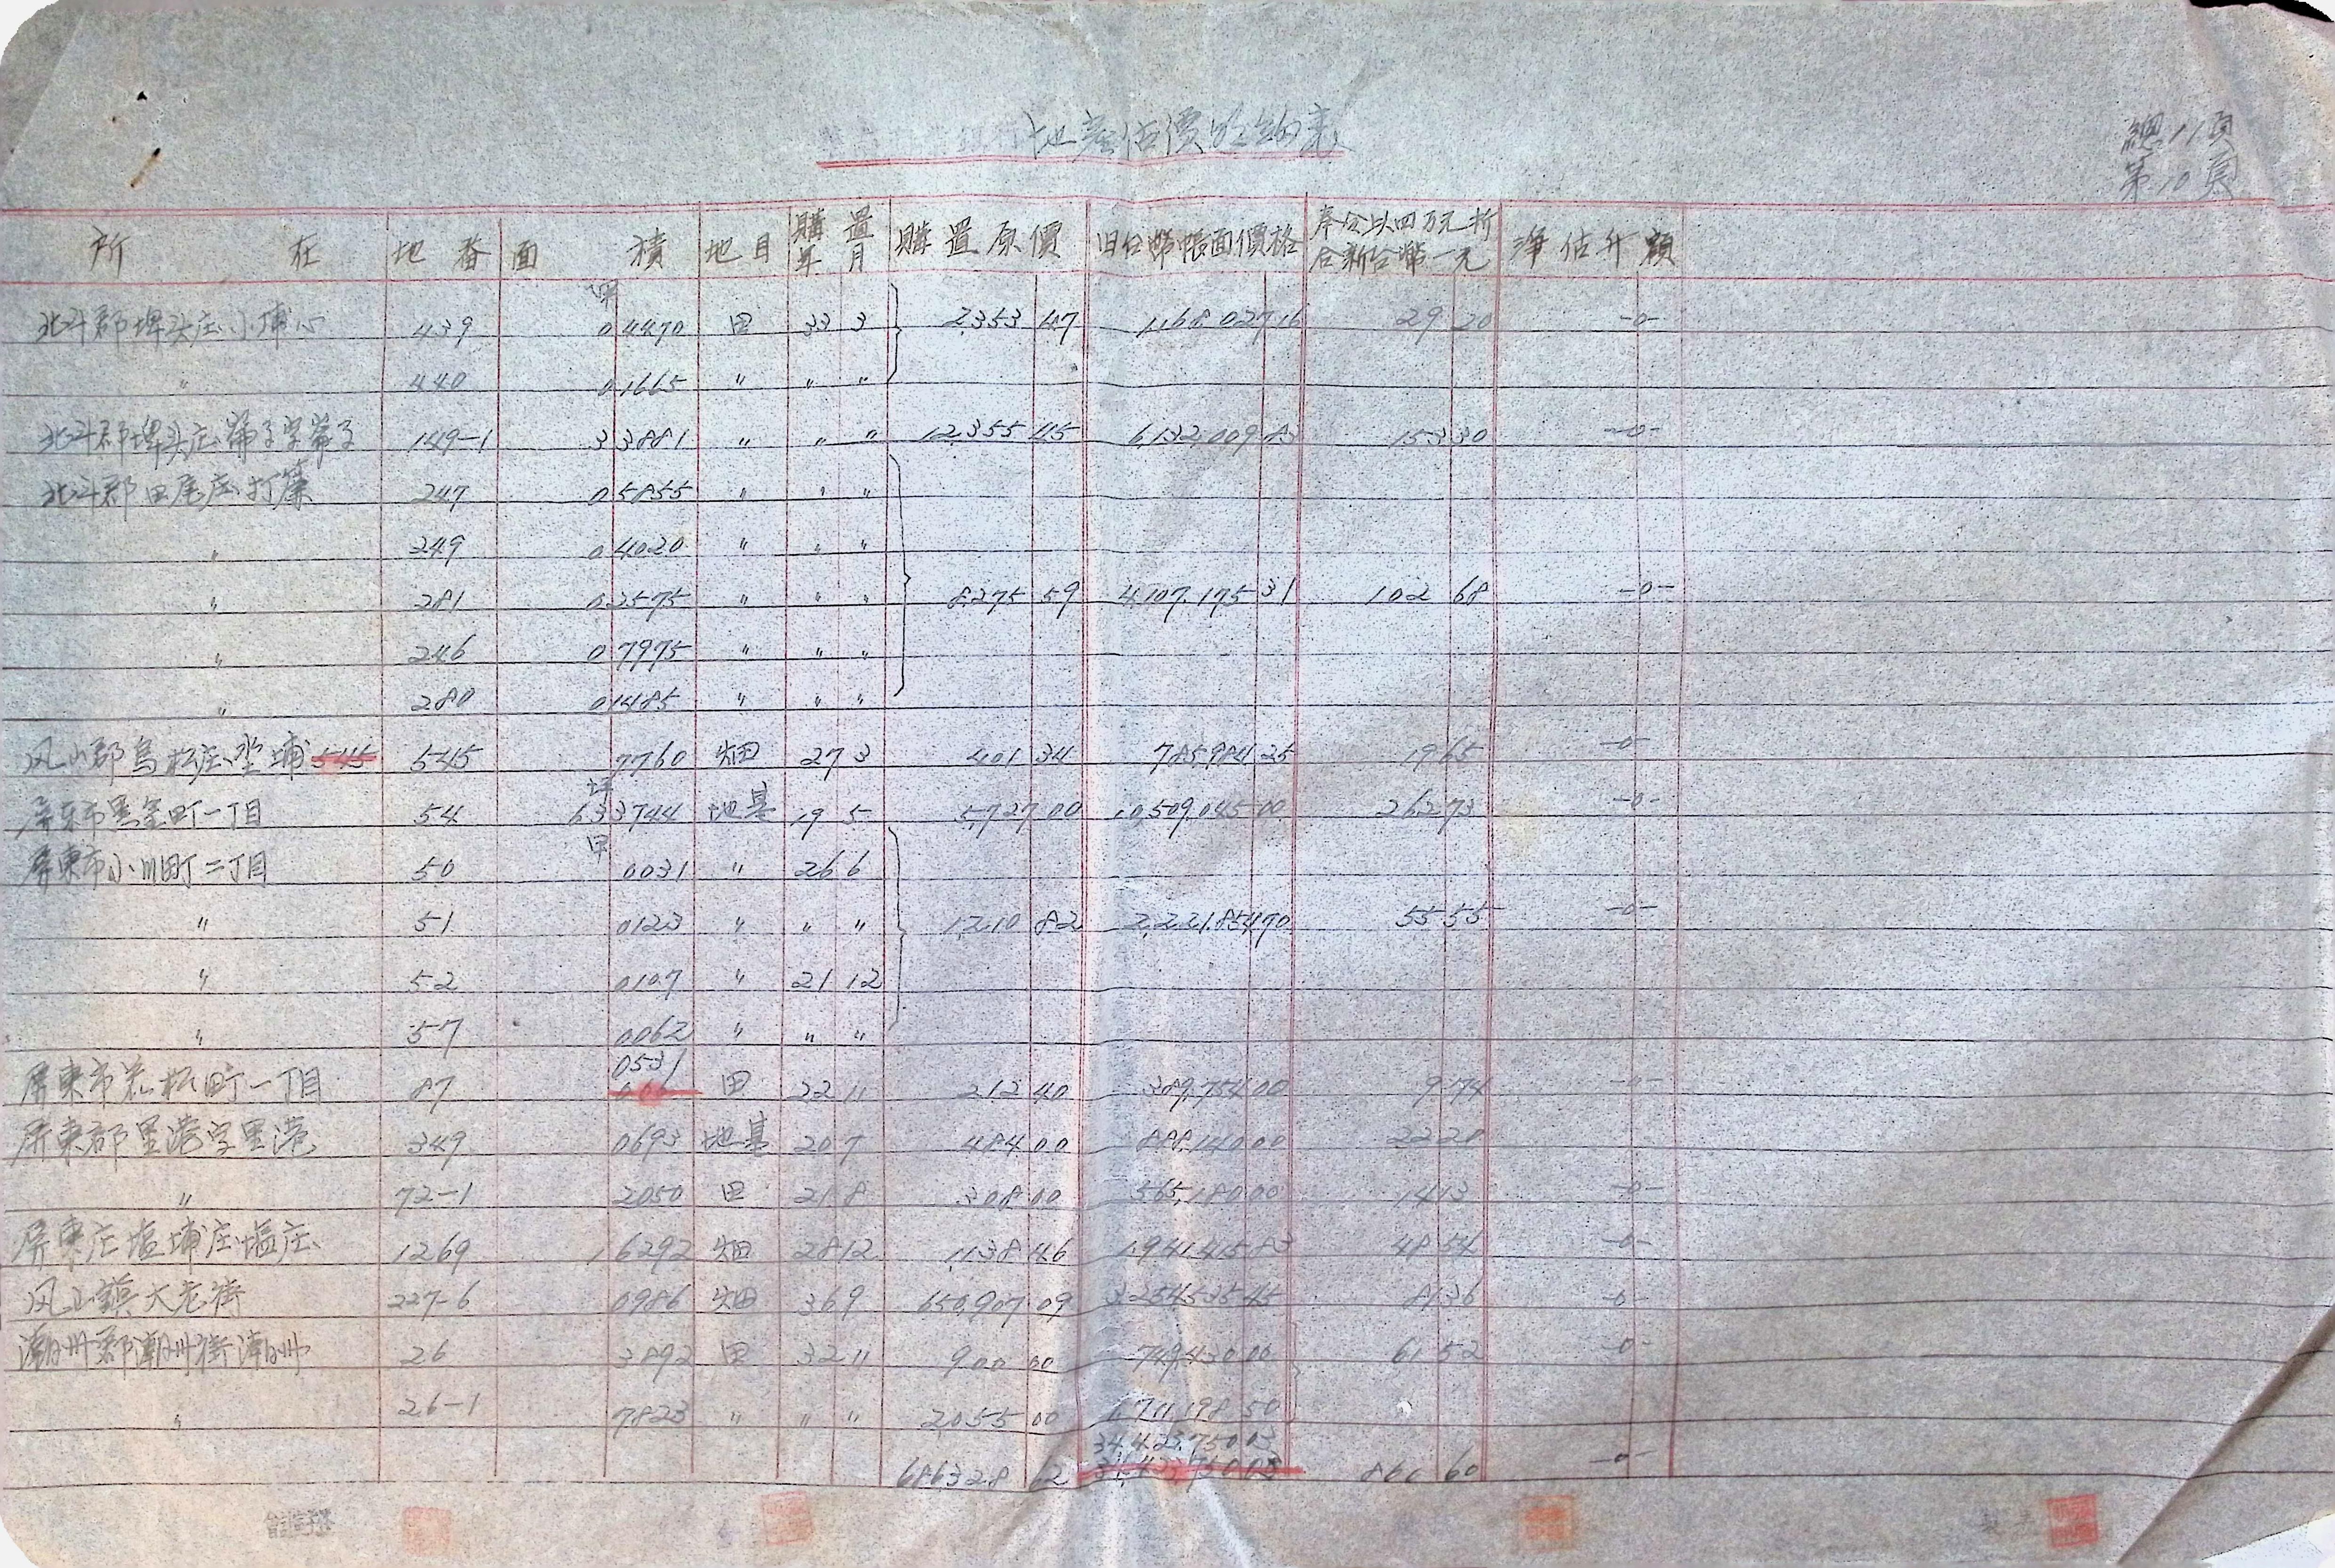 地產估價詳細表
總11頁
第10頁
所在 地番 面積 地目 購置年月 購置原價 旧台幣帳面價格 奉令以四万元折合新台幣一元 淨估升額
甲
北斗郡埤头庄小埔心 439 0 4470 田 33 3 2,353 47 1,168,027 16 29 20 -0-
〃 440 0 1665 〃 〃 〃
北斗郡埤头庄 149-1 3 3881 〃 〃 〃 12,355 45 6,132,009 83 153 30 -0-
北斗郡田尾庄打簾 247 0 5855 〃 〃 〃
〃 249 0 4020 〃 〃 〃
〃 281 0 2575 〃 〃 〃 8,275 59 4,107,175 31 102 68 -0-
〃 246 0 7975 〃 〃 〃
〃 280 0 1485 〃 〃 〃
凤山郡鸟松庄埔 545 545 7760 畑 27 3 401 34 785,984 25 19 65 -0-
坪
屏东市黑金町一丁目 54 633 744 地基 19 5 5,727 00 10,509,045 00 262 73 -0-
甲
屏東市小川町二丁目 50 0031 〃 26 6
〃 51 0123 〃 〃 〃 1,210 82 2,221,854 70 55 55 -0-
〃 52 0107 〃 21 12
〃 57 0062 〃 〃 〃
0531
屏東市若松町一丁目 87 田 22 11 212 40 389,754 00 9 74 -0-
屏東郡里港字里港 349 0693 地基 20 7 484 00 888,140 00 22 20
〃 72-1 2050 田 21 8 308 00 565,180 00 14 13 -0-
屏東庄塩埔庄塩庄 1269 1 6292 畑 28 12 1,138 46 1,941,415 83 48 54 -0-
凤山鎮大老衙 227-6 0986 畑 36 9 650,907 09 3,254,535 45 81 36 -0-
潮州郡潮州街潮州 26 3892 田 32 11 900 00 749,430 00 61 52 -0-
〃 26-1 7823 〃 〃 〃 2,055 00 1,711,198 50
34,423,750 03
686,328 62 860 60 -0-